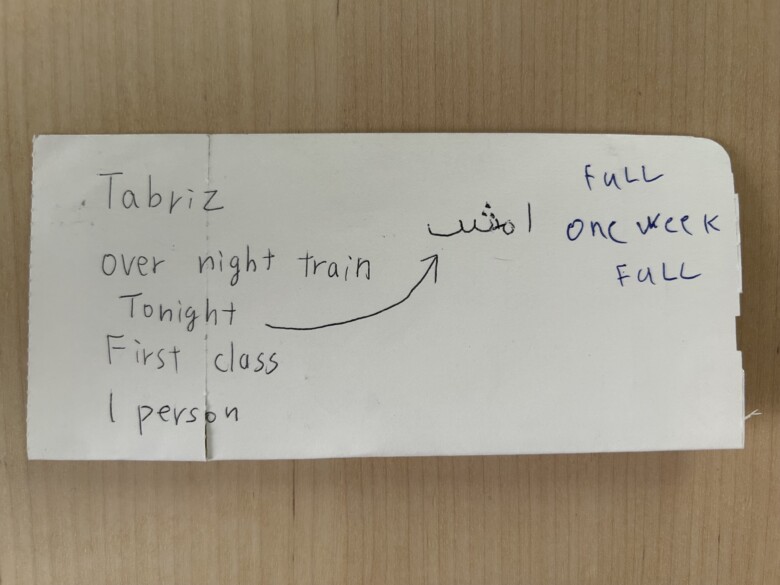 Tabriz
over night train
Tonight
First class
1 person
امشب
FULL
one week
FULL